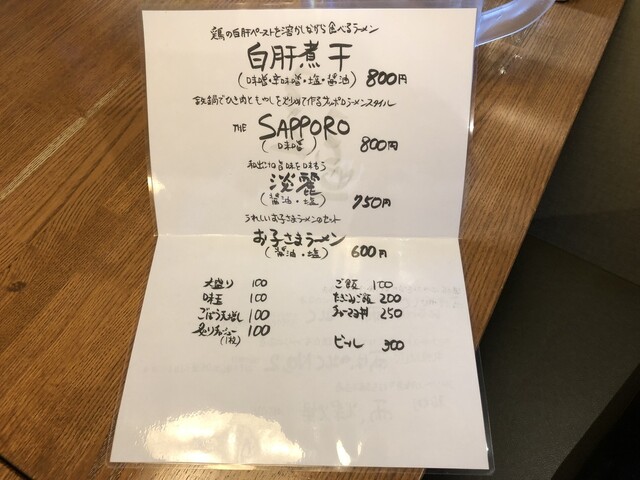 鶏の白肝ペーストを溶かしながら食べるラーメン
白肝煮干
(味噌・辛味噌・塩・醤油) 800円
鉄鍋でひき肉ともやしを炒めて作るサッポロラーメンスタイル
THE SAPPORO
(味噌) 800円
淡麗
(醤油・塩) 750円
うれしいお子さまラーメンのセット
お子さまラーメン
(醤油・塩) 600円
大盛り 100
味玉 100
ごぼう天増し 100
炙りチャーシュー 100
(1枚)
ご飯 100
たきこみご飯 200
チャーマヨ丼 250
ビール 300